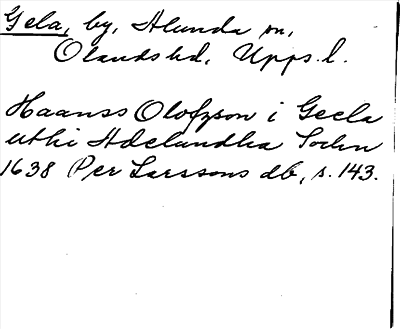 Gela, by, Alunda sn,
Olands hd, Upps. l.
Haanss Olofzson i Geela
uthi Adelundha Sochn
1638 Per Larssons db, s. 143.